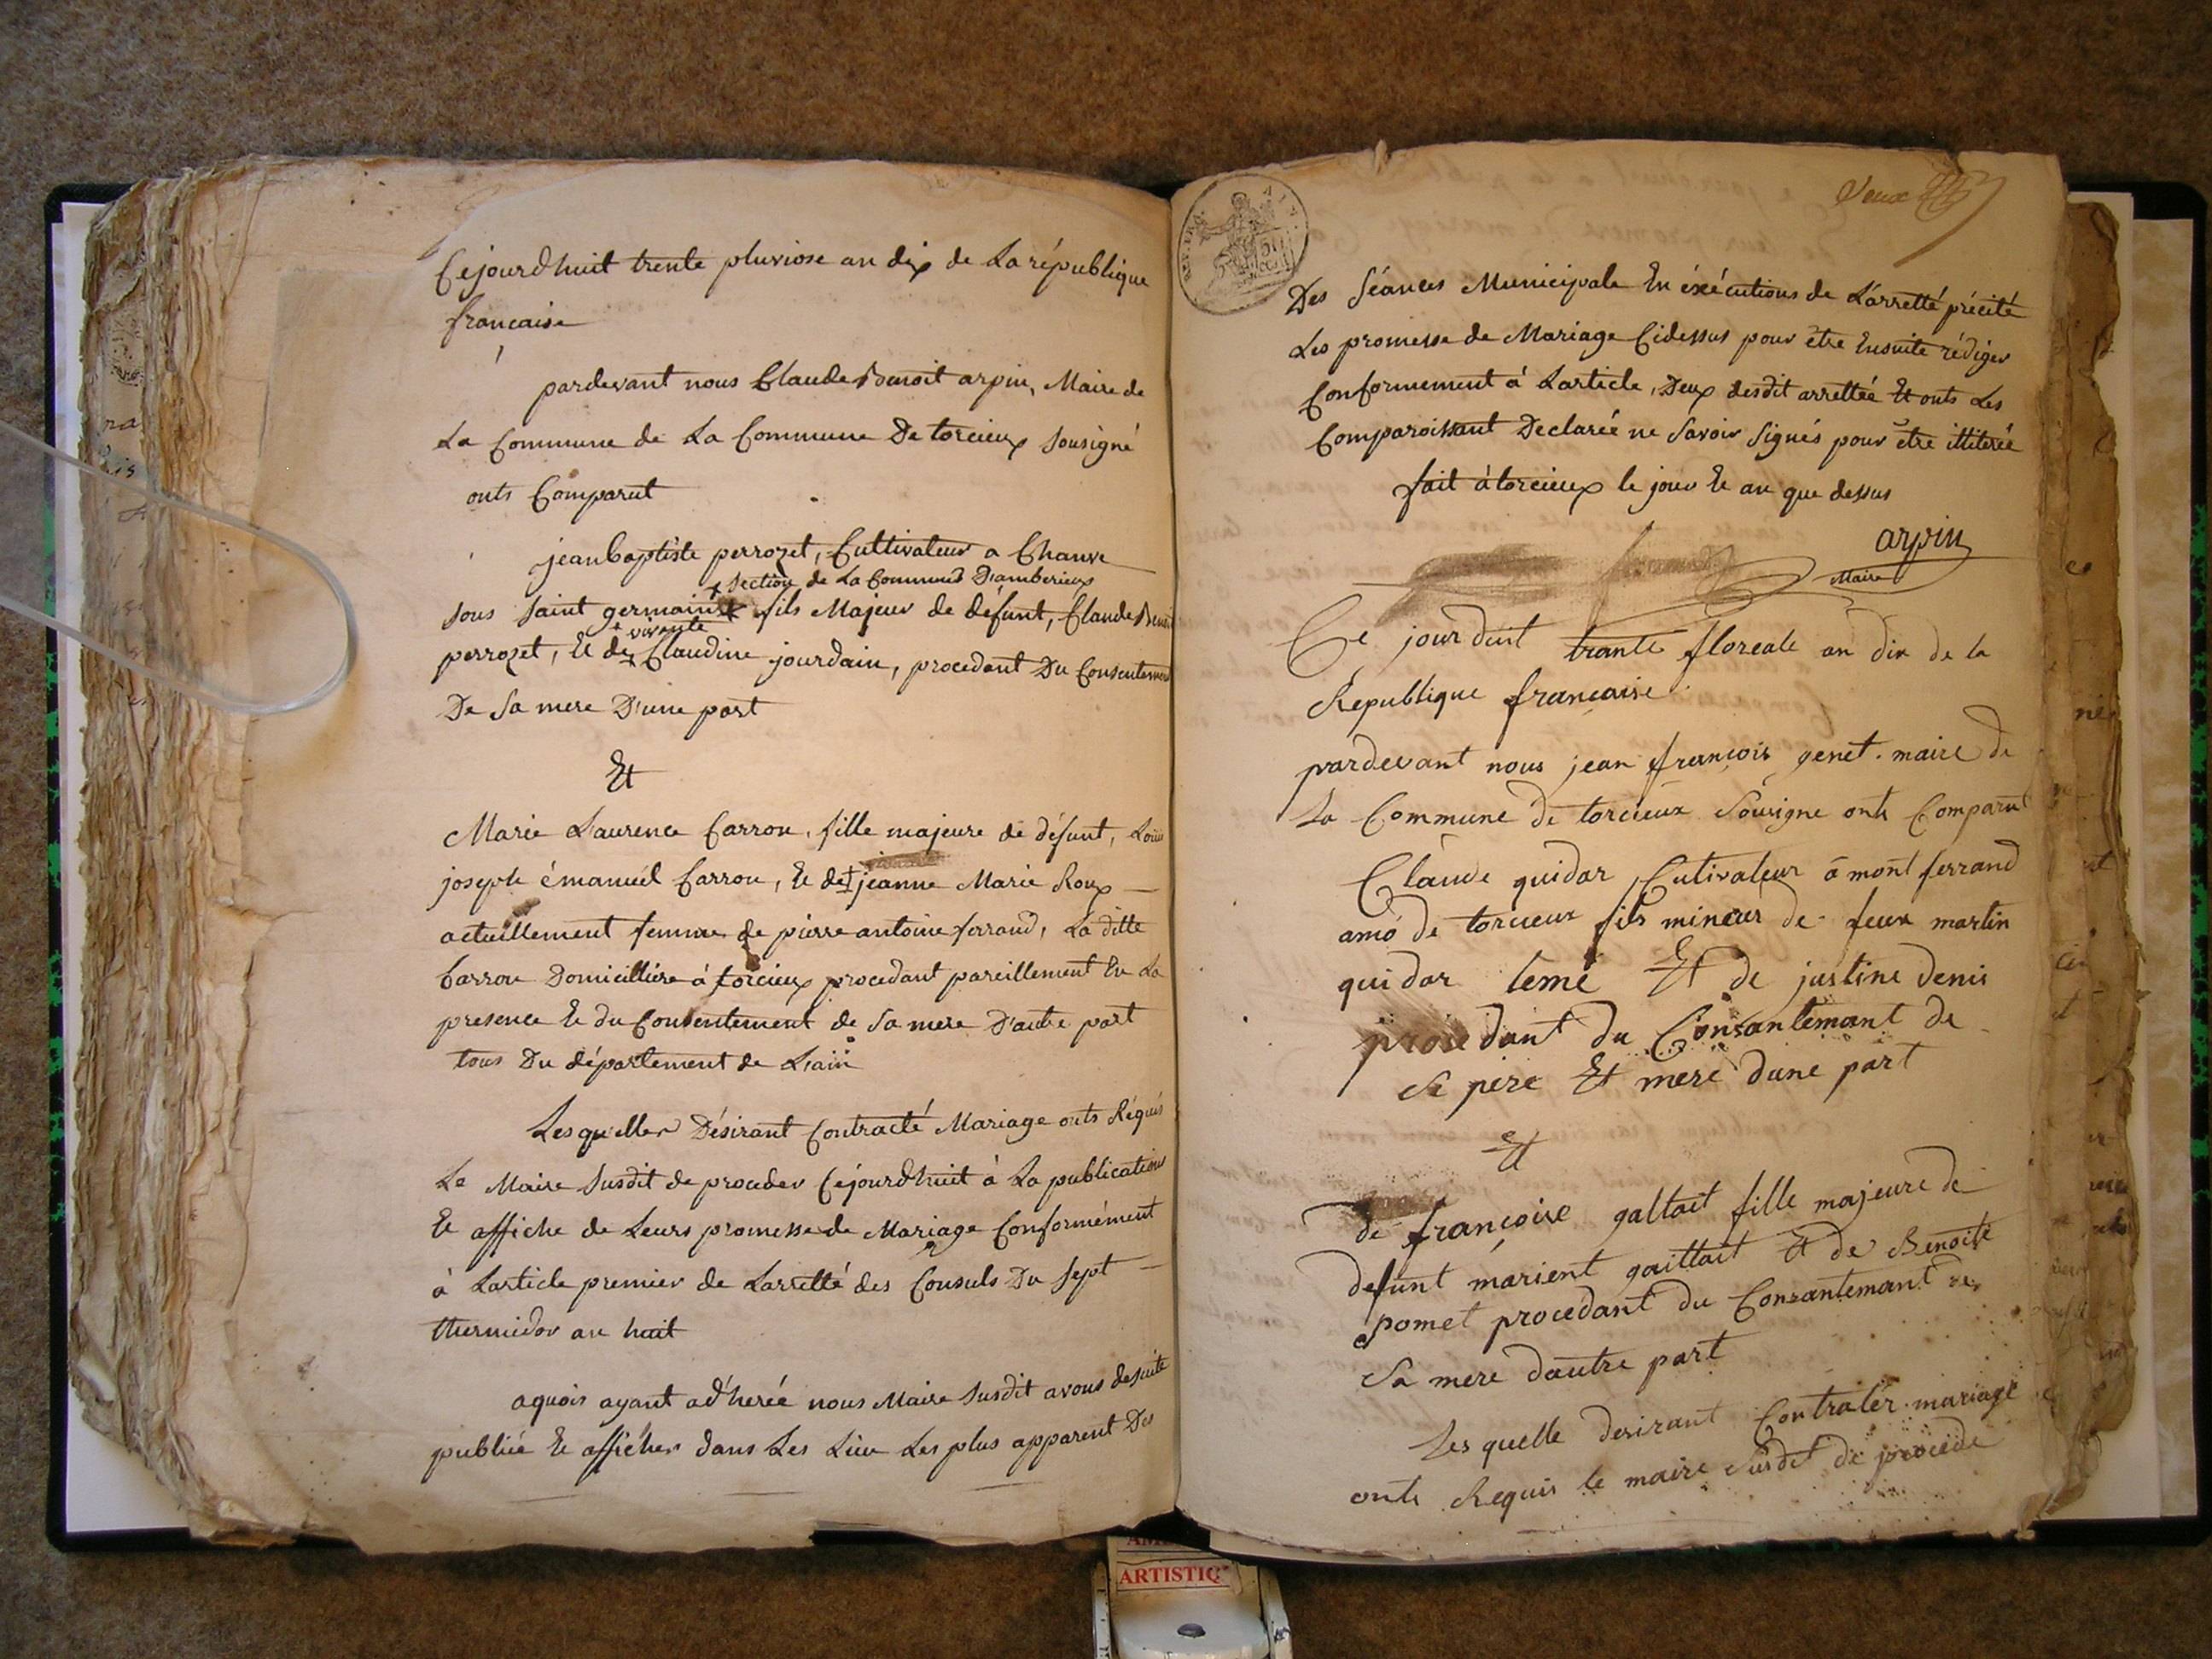 Cejourdhuit trente pluviose an dix de La république
française
pardevant nous Claude Benoit arpin, Maire de
La Commune de La Commune De torcieux sousigné
onts Comparut
jean baptiste perrozet, Cultivateur a Chauve
section de La Commune D'amberieux
sous saint germain fils Majeur de défunt, Claude Benoit
vivante
perrozet, Et de Claudine jourdain, procedant Du Consentement
De Sa mere D'une part
Et
Marie Laurence Carron, fille majeure de défunt, Louis
joseph émanuël Carron, Et de jeanne Marie Roux
actuellement femme de pierre antoine ferrand, La ditte
Carron Domicilliére à torcieux procedant pareillement En La
presence Et du Consentement de Sa mere D'autre part
tous Du département de L'ain
Lesqueller Désirant Contracté Mariage onts Réquis
Le Maire Susdit de proceder Cejourdhuit à La publication
Et affiche de Leurs promesse de Mariage Conformément
à Larticle premier de Larretté des Consuls Du Sept
thermidor an huit
aquois ayant adherée nous Maire Susdit avons desuite
publiée Et afficher dans Les Lieu Les plus apparent Des
Deux
Des Séances Municipale En éxécutions de L'arretté précité
Les promesse de Mariage Cidessus pour être Ensuite rédiger
Conformement à Larticle, Deux desdit arrettée Et onts Les
Comparoissant Declarée ne Savoir Signés pour être illiterée
fait à torcieux le jour Et an que dessus
arpin
Maire
Ce jour duit trante floreale an dix de la
Republique francaise
pardevant nous jean françois genet. maire de
La Commune de torcieux Sousigne onts Comparut
Claude quidar Cutivateur a mont ferrand
amo de torcieux fils mineur de feux martin
quidar temé Et de justine denis
procedant du Consantemant de
Se pere Et mere dune part
Et
de françoise galtait fille majeure de
defunt marient gaittait Et de Benoite
pomet procedant du Consantemant de
Sa mere dautre part
Les quelle desirant Contrater. mariage
onts Requis le maire Susdit de procede
ARTISTIQ